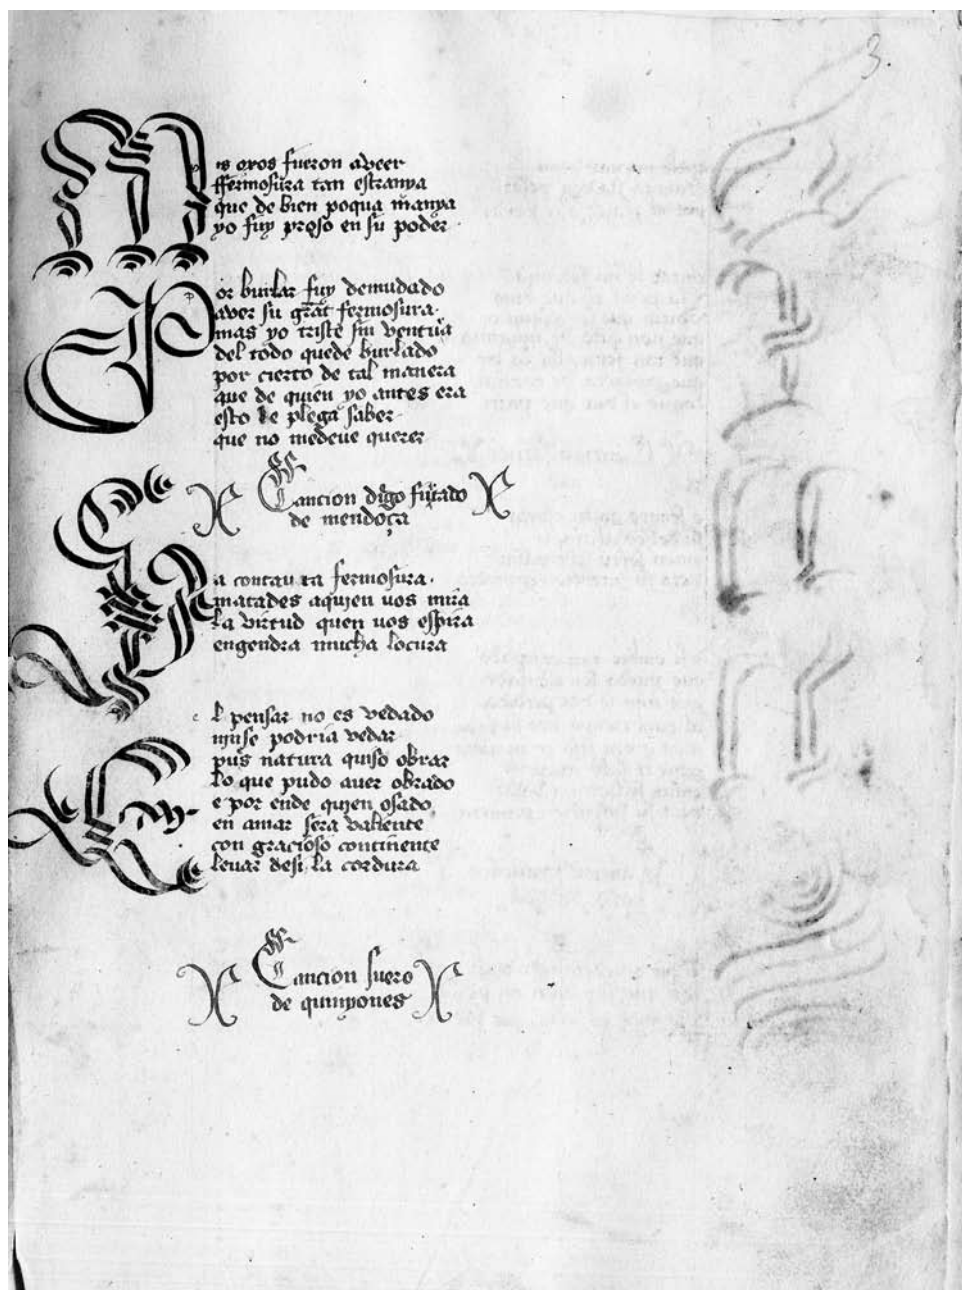 3.
Mis oios fueron aveer
ffermosura tan estranya
que de bien poqua manya
yo fuy preso en su poder
Por burlar fuy demudado
aver su grat fermosura
mas yo triste sin ventura
del todo quede burlado
por cierto de tal manera
que de quien yo antes era
esto le plega saber
que no medeve querer
Cancion digo furtado
de mendoça
fermosura
matades aquien vos mira
la virtud quen vos espira
engendra mucha locura
El pensar no es vedado
nise podria vedar
pus natura quiso obrar
lo que pudo aver obrado
e por ende quien osado
en amar sera valiente
con gracioso continente
levar desi la cordura
Cancion suero
de quinyones